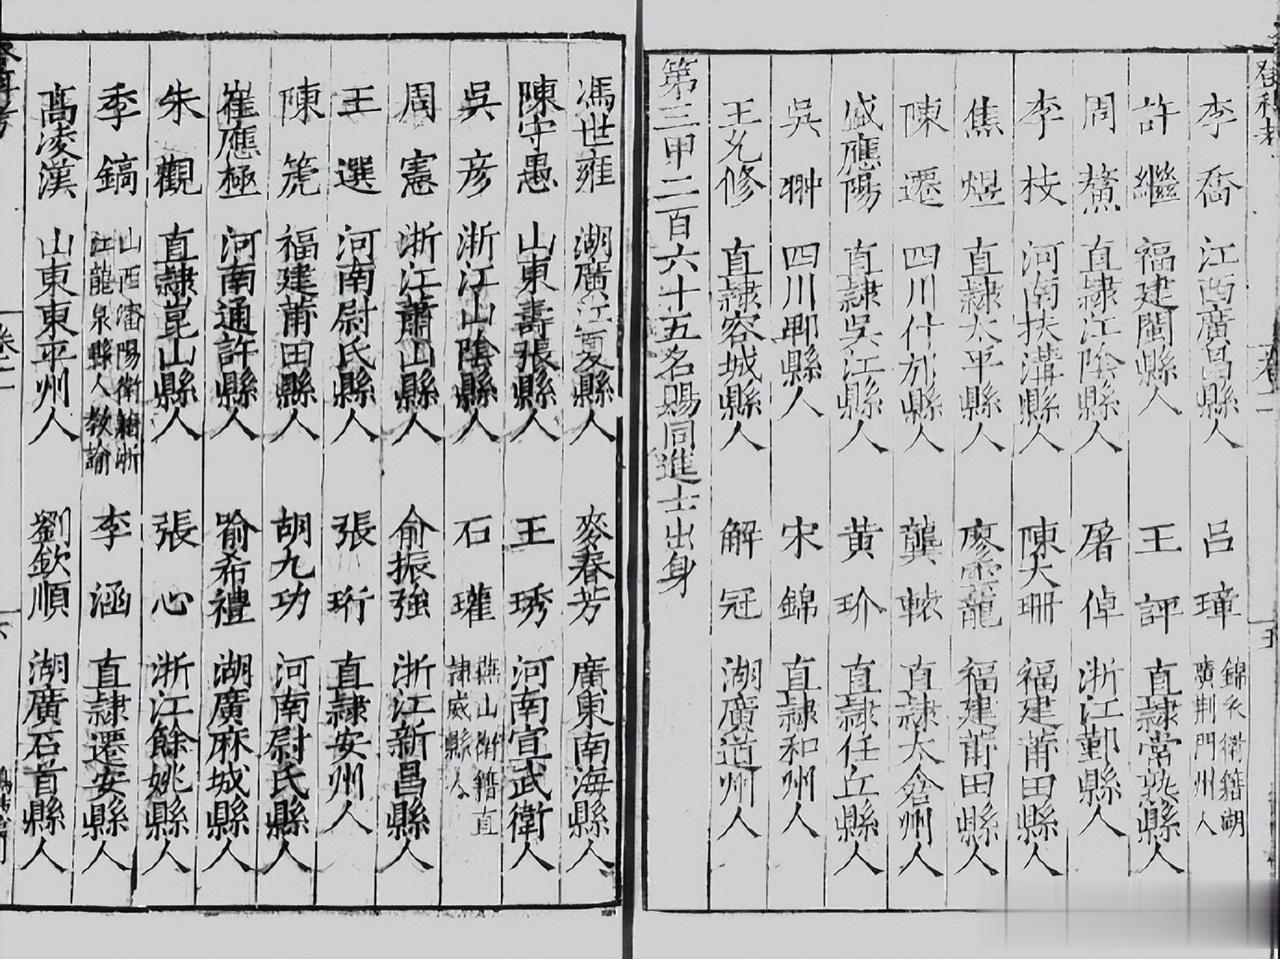 李喬 江西廣昌縣人 呂璋 錦衣衛籍湖廣荆門州人
許繼 福建閩縣人 王評 直隸常熟縣人
周鰲 直隸江陰縣人 屠倬 浙江鄞縣人
李枝 河南扶溝縣人 陳大珊 福建莆田縣人
焦煜 直隸太平縣人 廖雲龍 福建莆田縣人
陳遷 四川什邡縣人 龔轅 直隸太倉州人
盛應陽 直隸吳江縣人 黄玠 直隸任丘縣人
吳翀 四川郫縣人 宋錦 直隸和州人
王允修 直隸容城縣人 解冠 湖廣道州人
第三甲二百六十五名賜同進士出身
馮世雍 湖廣江夏縣人 麥春芳 廣東南海縣人
陳守愚 山東壽張縣人 王琇 河南宣武衛人
吳彦 浙江山陰縣人 石瓘 燕山衛籍直隸威縣人
周憲 浙江蕭山縣人 俞振強 浙江新昌縣人
王選 河南尉氏縣人 張珩 直隸安州人
陳篪 福建莆田縣人 胡九功 河南尉氏縣人
崔應極 河南通許縣人 喻希禮 湖廣麻城縣人
朱觀 直隸崑山縣人 張心 浙江餘姚縣人
季鎬 山西瀋陽衛籍浙江龍泉縣人教諭 李涵 直隸遷安縣人
高凌漢 山東東平州人 劉欽順 湖廣石首縣人